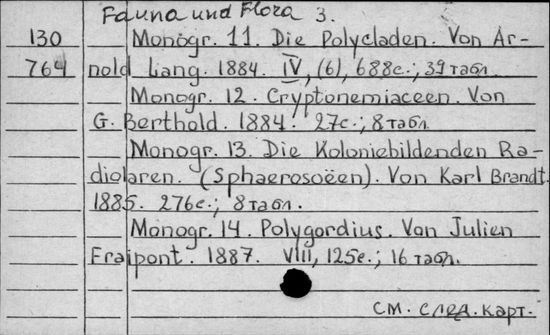 Fauna und Flora 3.
130 Monogr. 11. Die Polycladen. Von Ar-
764 nold Lang. 1884. IV, (6), 688с.; 39 табл.
Monogr. 12. Cryptonemiaceen. Von
G. Berthold. 1884. 27с.; 8 табл.
Monogr. 13. Die Koloniebildenden Ra-
diolaren. (Sphaerosoëen). Von Karl Brandt.
1885. 276с.; 8 табл.
Monogr. 14. Polygordius. Von Julien
Fraipont. 1887. VIII, 125с.; 16 табл.
см. след. карт.